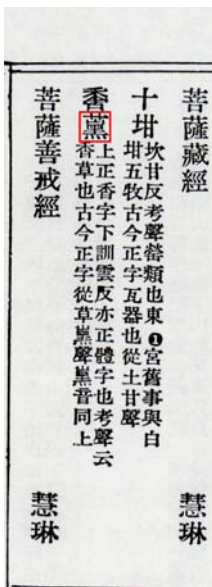 菩薩藏經 慧琳
十坩 坎甘反考聲罃類也東❶宮舊事與白
坩五牧古今正字瓦器也從土甘聲
香薰 上正香字下訓雲反亦正體字也考聲云
香草也古今正字從草熏聲熏音同上
菩薩善戒經 慧琳